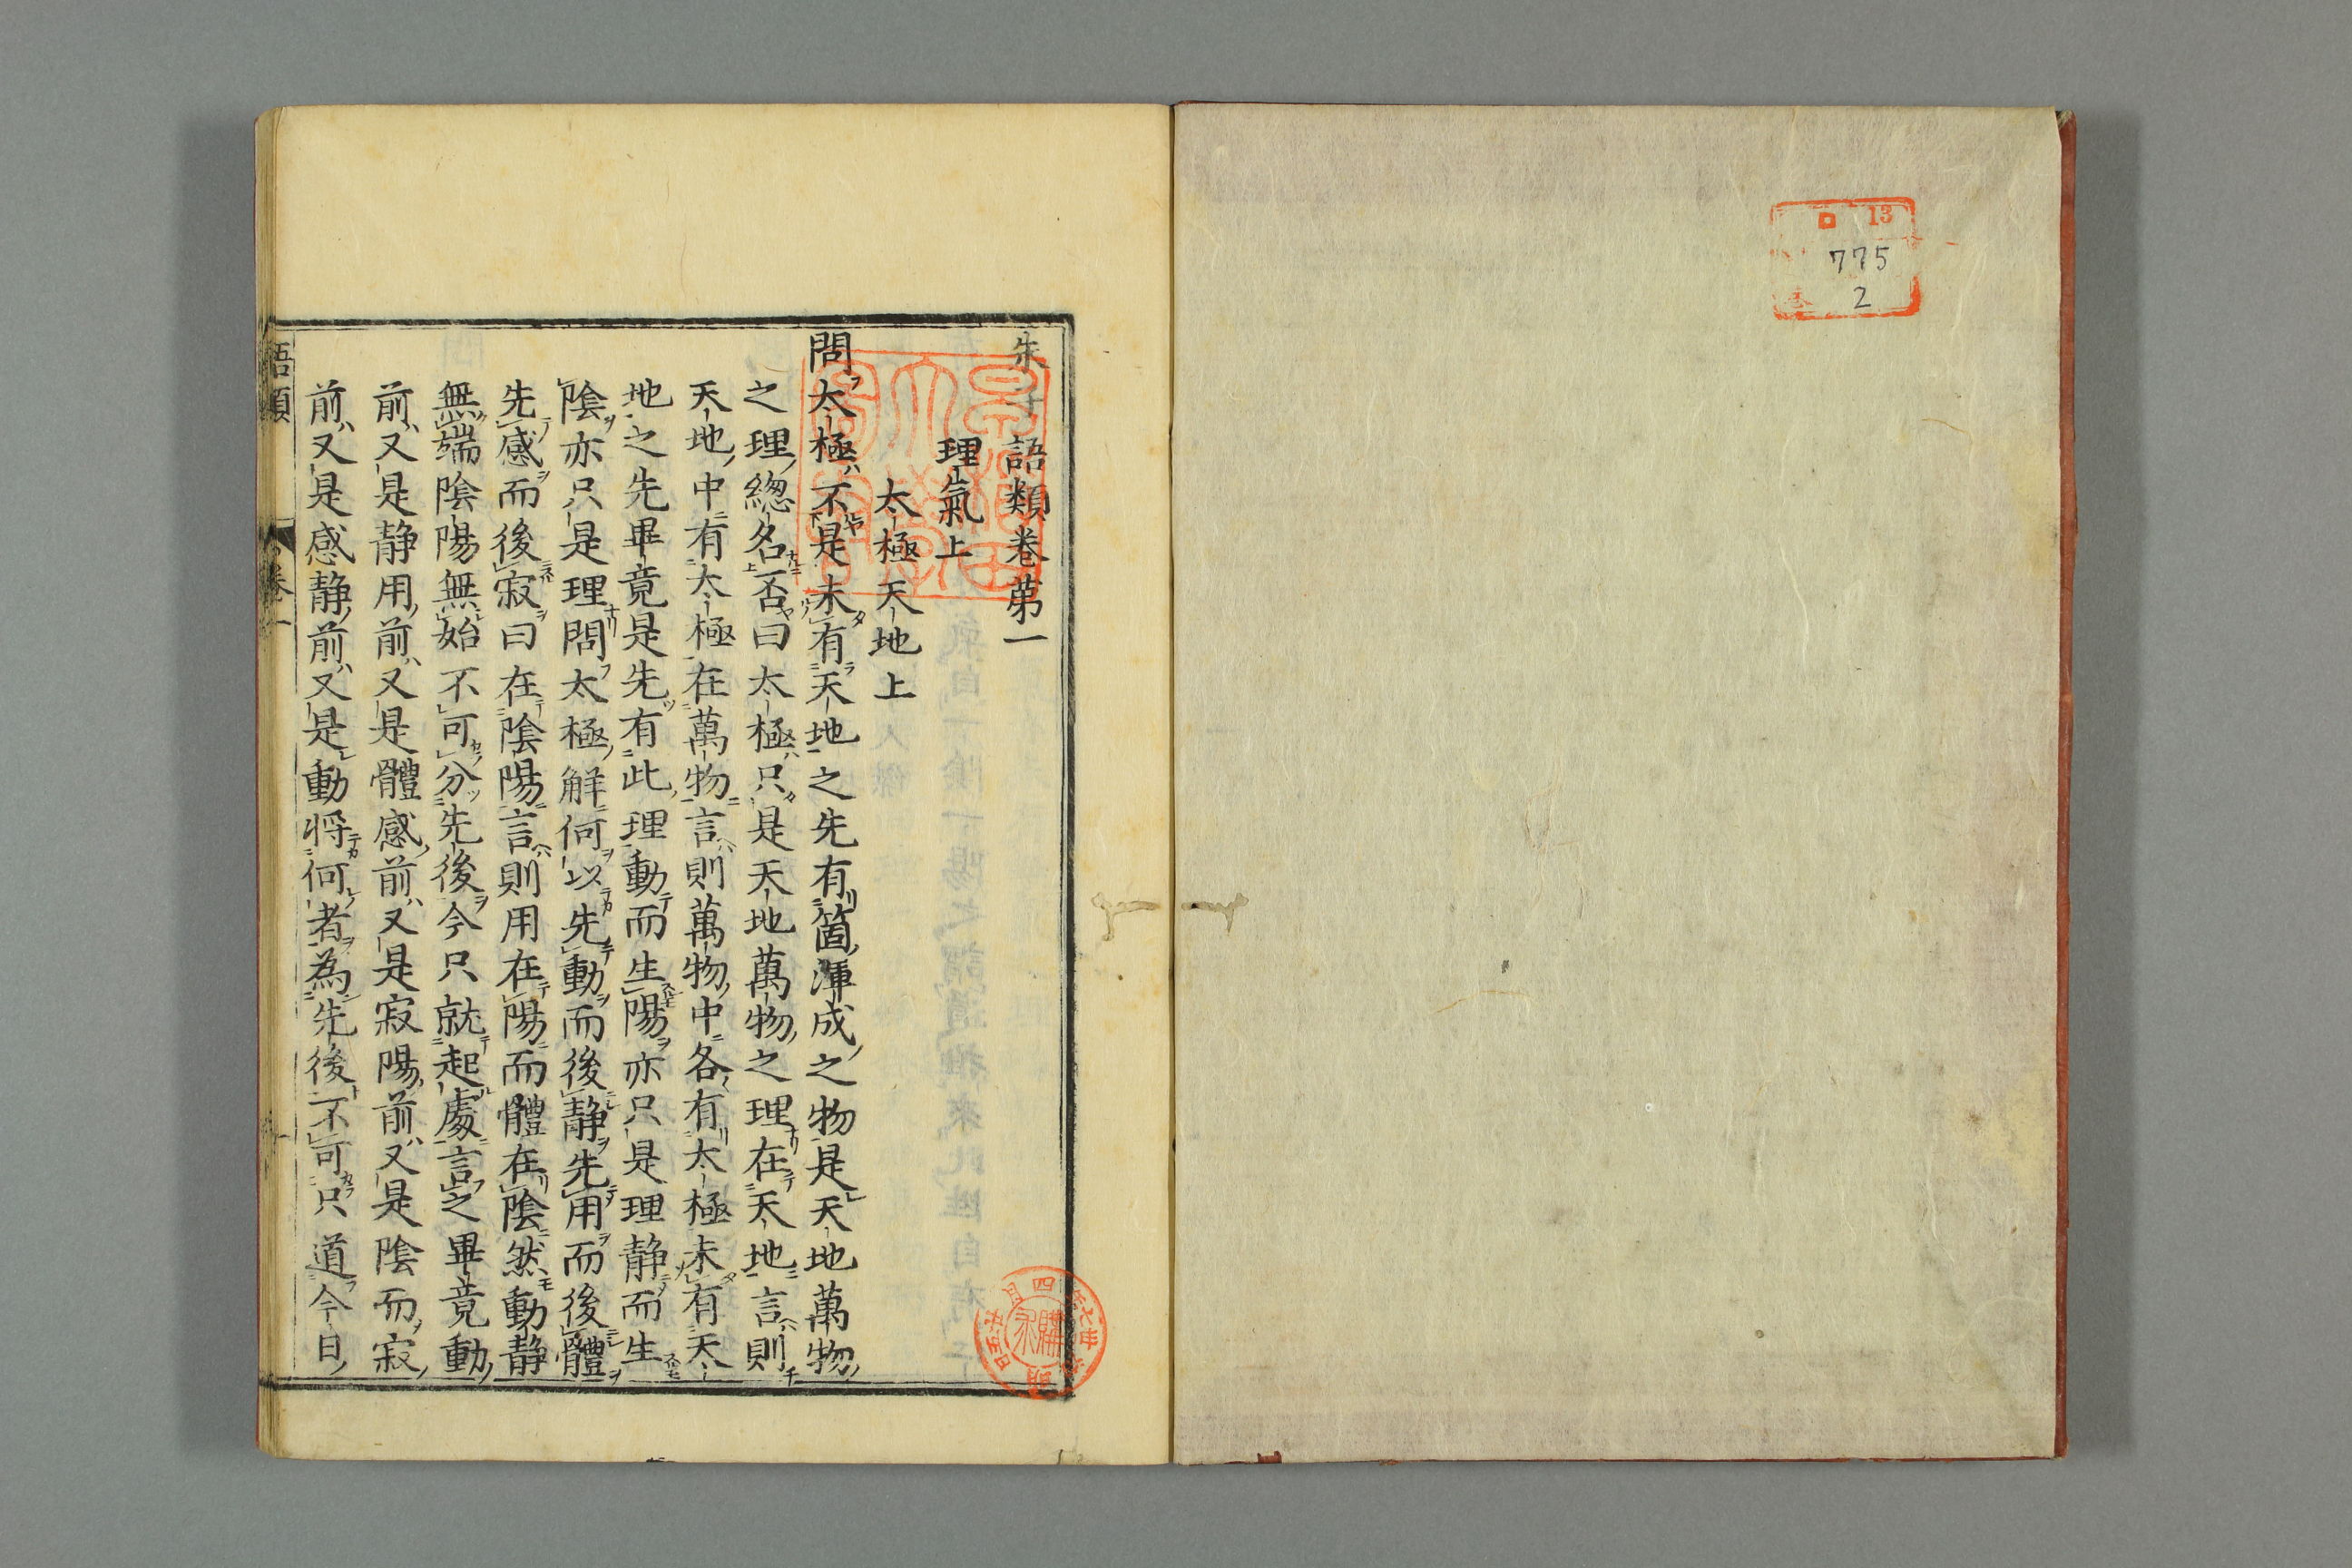 ロ 13
775
2
朱子語類卷第一
理氣上
太極天地上
問太極不是未有天地之先有箇渾成之物是天地萬物
之理緫名否曰太極只是天地萬物之理在天地言則
天地中有太極在萬物言則萬物中各有太極未有天
地之先畢竟是先有此理動而生陽亦只是理静而生
陰亦只是理問太極解何以先動而後静先用而後體
先感而後寂曰在陰陽言則用在陽而體在陰然動静
無端陰陽無始不可分先後今只就起處言之畢竟動
前又是静用前又是體感前又是寂陽前又是陰而寂
前又是感静前又是動將何者為先後不可只道今日
語類
卷一